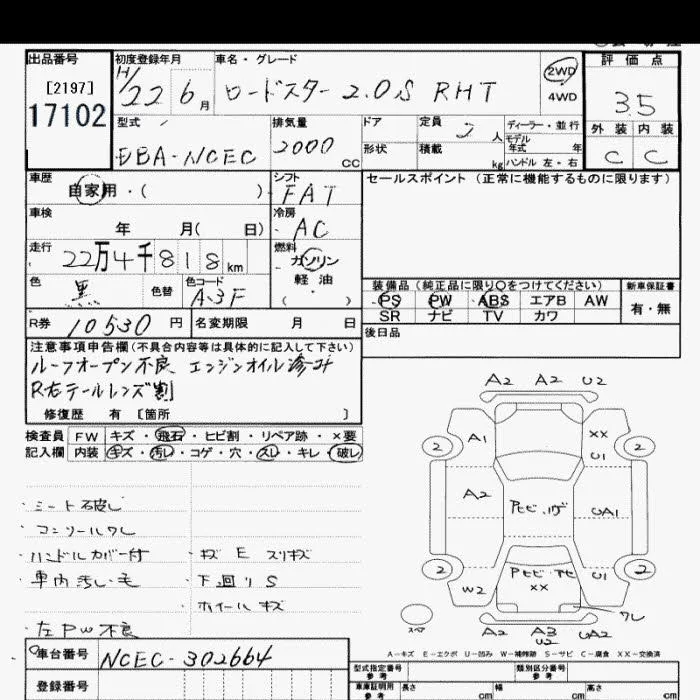 出品番号 初度登録年月 車名・グレード 評価点
[2197] 17102
H/22 6月 ロードスター 2.0S RHT 2WD 4WD 3.5
型式 排気量 ドア 定員 2人 ディーラー・並行 外装 内装
DBA-NCEC 2000cc 形状 積載 kg モデル年式 年 ハンドル 左・右 C C
車歴 自家用・( ) シフト FAT セールスポイント (正常に機能するものに限ります)
車検 年 月( 日) 冷房 AC
走行 22万4千818km 燃料 ガソリン 軽油 ( )
色 黒 色替 色コード A3F
装備品 (純正品に限り○をつけてください) 新車保証書
PS PW ABS エアB AW 有・無
SR ナビ TV カワ
R券 10530円 名変期限 月 日 後日品
注意事項申告欄 (不具合内容等は具体的に記入して下さい)
ルーフオープン不良、エンジンオイル滲み
R右テールレンズ割
修復歴 有 [箇所 ]
検査員 FW キズ・飛石・ヒビ割・リペア跡・×要
記入欄 内装 キズ・汚レ・コゲ・穴・スレ・キレ・破レ
・シート破レ
・コンソールワレ
・ハンドルカバー付 ・キズ E スリキズ
・車内汚レ モ ・下回リS
・ホイールキズ
・左PW不良
A2 A2 U2
2 A1 XX U1 2
A2 UA1
2 W2 XX U1 2
ワレ
スペア A2 A3 U2 UA2
A-キズ E-エクボ U-凹み W-補修跡 S-サビ C-腐食 XX-交換済
車台番号 NCEC-302664
型式指定番号 参考 類別区分番号 参考
登録番号 車庫証明用 参考 長さ cm 幅 cm 高さ cm